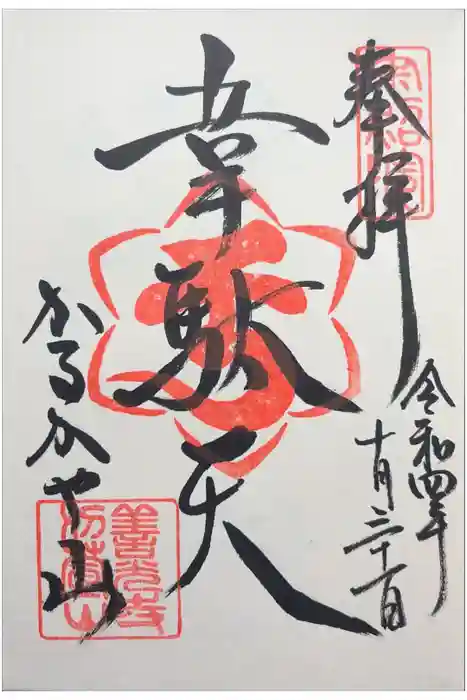 奉拝
令和四年
十月三十一日
韋駄天
かるかや山
善光寺
苅萱山